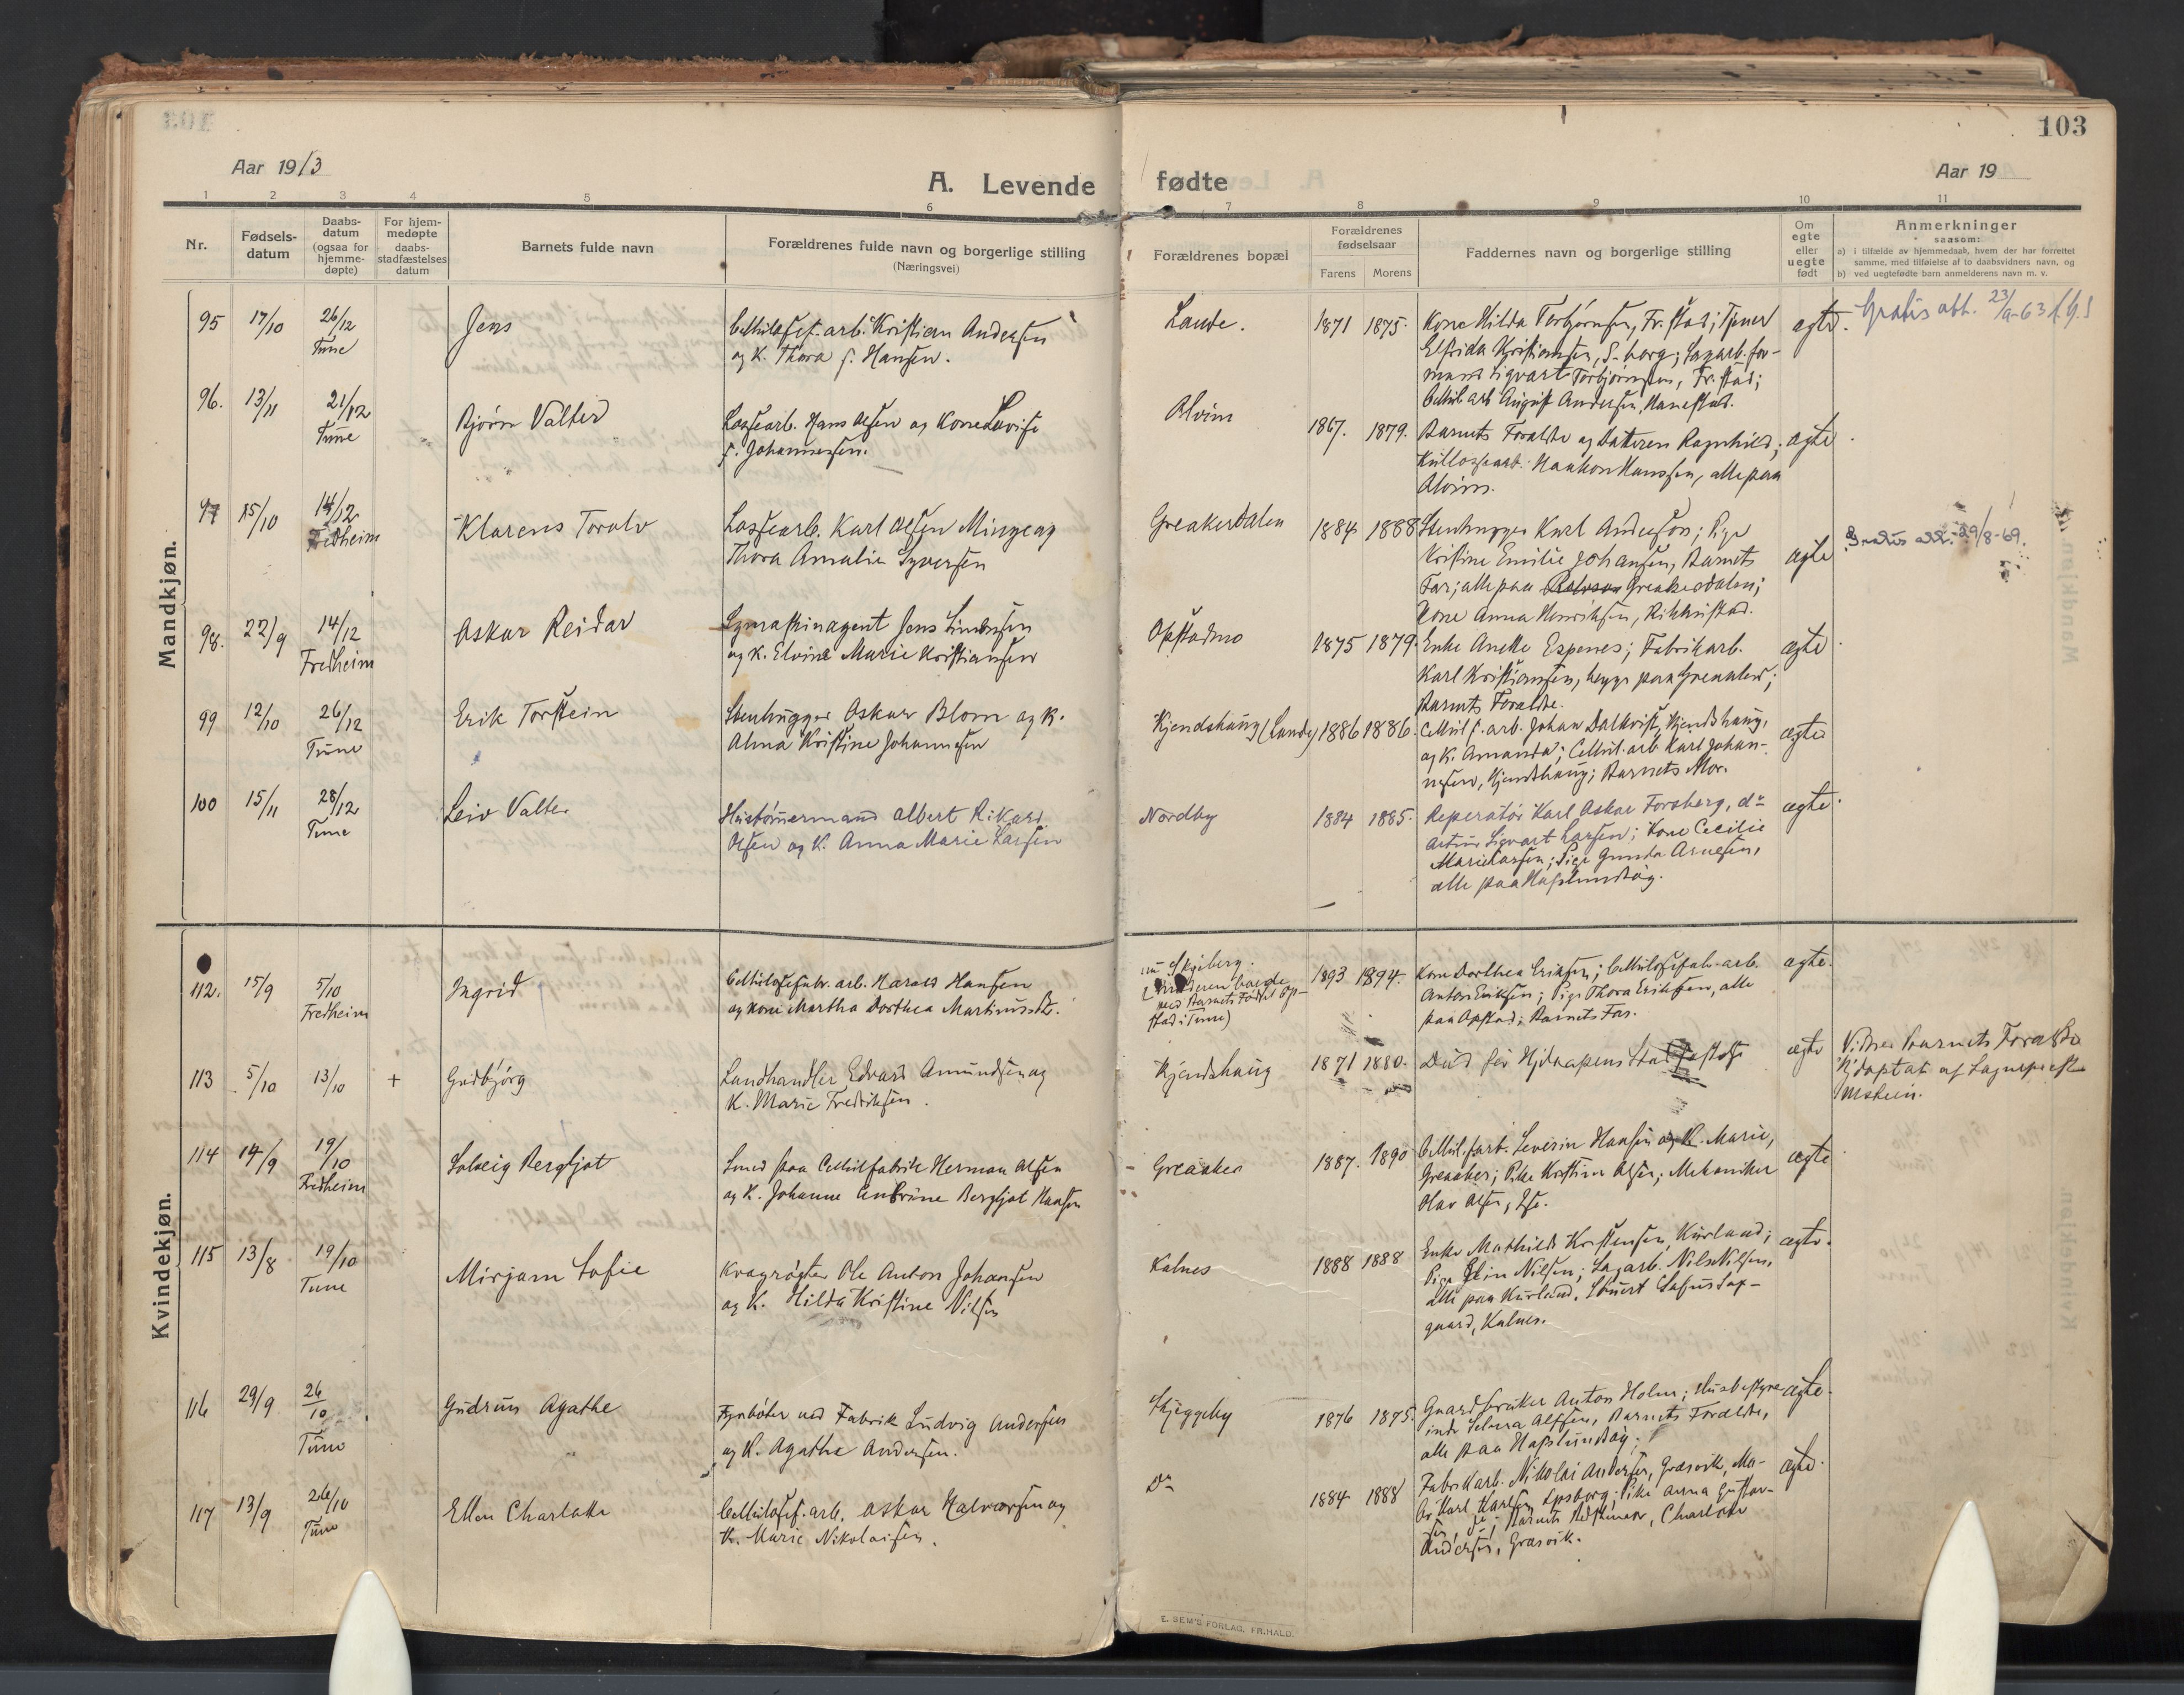 103
Aar 1913
A. Levende fødte
Aar 19
1 2 3 4 5 6 7 8 9 10 11
Nr.
Fødsels-
datum
Daabs-
datum
(ogsaa for
hjemme-
døpte)
For hjem-
medøpte
daabs-
stadfæstelses
datum
Barnets fulde navn
Forældrenes fulde navn og borgerlige stilling
(Næringsvei)
Forældrenes bopæl
Forældrenes
fødselsaar
Farens Morens
Faddernes navn og borgerlige stilling
Om
egte
eller
uegte
født
Anmerkninger
saasom:
a) i tilfælde av hjemmedaab, hvem der har forrettet
samme, med tilføielse af to daabsvidners navn, og
b) ved uegtefødte barn anmelderens navn m. v.
Mandkjøn.
95 17/10 26/12 Tune
Jens
Cellulosef. arb. Kristian Andersen
og K. Thora f. Hansen.
Lande.
1871 1875.
Kone Hilda Torbjørnsen, Fr.stad; Tjener
Elfrida Kristiansen, S-borg; Sagarb. for-
mand Sigvart Torbjørnsen, Fr.stad;
Cellul. arb August Andersen, Hanestad.
egte.
Gratis att. 23/9-63
96. 13/11 21/12 Tune
Bjørn Valter
Lossearb. Hans Olsen og Kone Lovise
f. Johannessen.
Alvim
1867. 1879.
Barnets Forældre og Datteren Ragnhild;
Kullossearb. Haakon Hanssen, alle paa
Alvim.
egte
97 15/10 14/12 Fredheim
Klarens Toralv
Lossearb. Karl Olsen Minge og
Thora Amalie Syversen
Greakerdalen
1884 1888
Stenhugger Karl Anderson; Pige
Kristine Emilie Johansen, Barnets
Far; alle paa Greakerdalen;
Kone Anna Henriksen,
egte
Gratis att. 29/8-69.
98. 22/9 14/12 Fredheim
Oskar Reidar
Symaskinagent Jens Simensen
og K. Elvine Marie Kristiansen
Opstadmo
1875 1879.
Enke Anette Espenes; Fabrikarb.
Karl Kristiansen, begge paa Greaaker;
Barnets Forældre.
egte
99 12/10 26/12 Tune
Erik Torstein
Stenhugger Oskar Blom og K.
Alma Kristine Johannesen
Kjendshaug (Lande)
1886 1886.
Cellul f. arb. Johan Dalkvist, Kjendshaug,
og K. Amanda; Cellul. arb Karl Johan-
nesen, Kjendshaug; Barnets Mor.
egte
100 15/11 28/12 Tune
Leiv Valter
Hustømmermand Albert Rikard
Olsen og K. Anna Marie Larsen
Nordby
1884 1885.
Reperatør Karl Oskar Forsberg, do
Artur Sigvart Larsen; Kone Cecilie
Marie Larsen; Pige Gunda Arnesen,
alle paa Hafslundsøy.
egte
Kvindekjøn.
112. 15/9 5/10 Fredheim
Ingrid
Cellulosefabr. arb. Harald Hansen
og kone Martha Dorthea Martinusdtr.
nu Skjeberg.
(Moderen boede
ved Barnets Fødsel Op-
stad i Tune)
1893 1894.
Kone Dorthea Eriksen; Cellulosefab. arb.
Anton Eriksen; Pige Thora Eriksen, alle
paa Opstad; Barnets Far.
egte.
113 5/10 13/10 +
Gudbjørg
Landhandler Edvard Amundsen og
K. Marie Fredriksen.
Kjendshaug
1871 1880.
Død før Hjdaapens Stadfæstelse
egte
Vidner Barnets Forældre
Hjdøpt af
114 14/9 19/10 Fredheim
Solveig Bergljot
Smed paa Cellulfabrik Herman Olsen
og K. Johanne Bergljot Hansen
Greaaker
1887. 1890
Cellul. f. arb. Severin Hansen og K. Marie,
Greaaker; Pike Kristine Olsen; Mekaniker
Olav Olsen,
egte
115 13/8 19/10 Tune
Mirjam Sofie
Kvægrøgter Ole Anton Johansen
og K. Hilda Kristine Nilsen
Kalnes
1888 1888
Enke Mathilde Kristensen, Kurland;
Pige Nilsen; Sagarb. Nils Nilsen,
alle paa Kurland.
gaard, Kalnes.
egte.
116 29/9 26/10 Tune
Gudrun Agathe
Fyrbøter ved Fabrik Ludvig Andersen
og K. Agathe Andersen.
Skjeggeby
1876 1875.
Gaardbruker Anton Holm; Husbestyre-
inde Selma Alfsen, Barnets Forældre,
alle paa Hafslundsøy;
egte.
117 13/9 26/10 Tune
Ellen Charlotte
Cellulosef. arb. Oskar Halvorsen og
K. Marie Nikolaisen.
Do
1884 1888
Fabrikarb. Nikolai Andersen, Græsvik, Ma-
Karl Karlsen, pike Anna Gustav-
sen Barnets Charlotte
Andersen, Græsvik.
egte.
E. SEM'S FORLAG. FR.HALD.